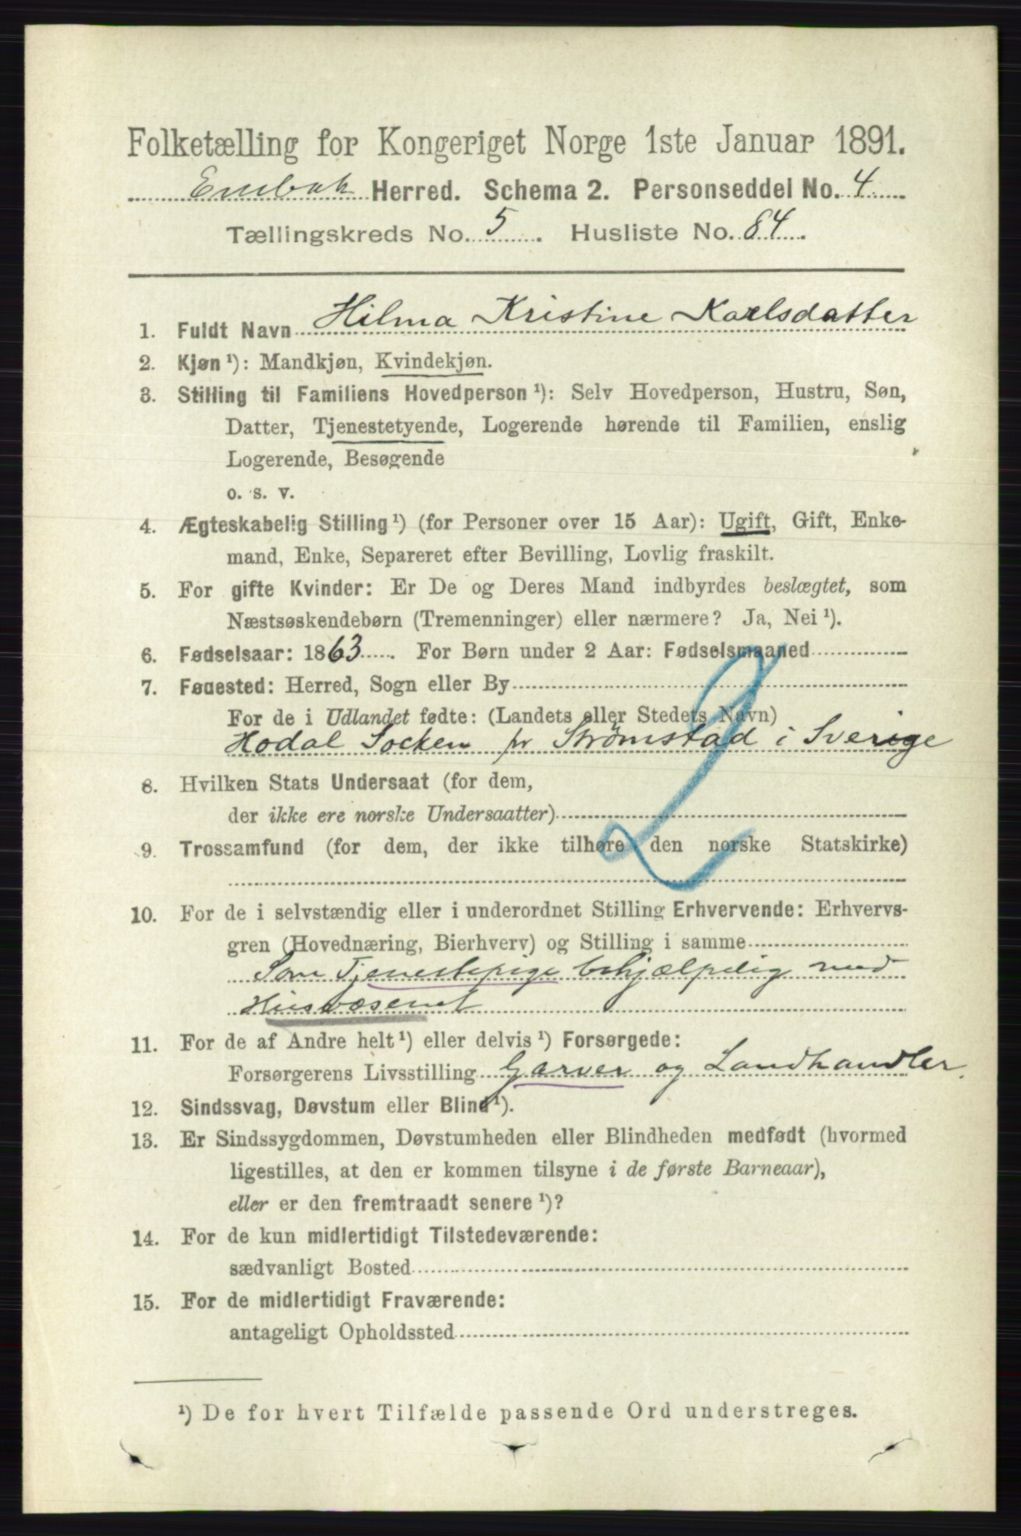 Folketælling for Kongeriget Norge 1ste Januar 1891.
Enebak Herred. Schema 2. Personseddel No. 4
Tællingskreds No. 5. Husliste No. 84.
1. Fuldt Navn Hilma Kristine Karlsdatter
2. Kjøn ¹): Mandkjøn, Kvindekjøn.
3. Stilling til Familiens Hovedperson ¹): Selv Hovedperson, Hustru, Søn,
Datter, Tjenestetyende, Logerende hørende til Familien, enslig
Logerende, Besøgende
o. s. v.
4. Ægteskabelig Stilling ¹) (for Personer over 15 Aar): Ugift, Gift, Enke-
mand, Enke, Separeret efter Bevilling, Lovlig fraskilt.
5. For gifte Kvinder: Er De og Deres Mand indbyrdes beslægtet, som
Næstsøskendebørn (Tremenninger) eller nærmere? Ja, Nei ¹).
6. Fødselsaar: 1863. For Børn under 2 Aar: Fødselsmaaned
7. Fødested: Herred, Sogn eller By
For de i Udlandet fødte: (Landets eller Stedets Navn)
Hodal Socken pr Strømstad i Sverige
2
8. Hvilken Stats Undersaat (for dem,
der ikke ere norske Undersaatter)
9. Trossamfund (for dem, der ikke tilhøre den norske Statskirke)
10. For de i selvstændig eller i underordnet Stilling Erhvervende: Erhvervs-
gren (Hovednæring, Bierhverv) og Stilling i samme
Som Tjenestepige behjælpelig med
Husvæsenet
11. For de af Andre helt ¹) eller delvis ¹) Forsørgede:
Forsørgerens Livsstilling Garver og Landhandler.
12. Sindssvag, Døvstum eller Blind ¹).
13. Er Sindssygdommen, Døvstumheden eller Blindheden medfødt (hvormed
ligestilles, at den er kommen tilsyne i de første Barneaar),
eller er den fremtraadt senere ¹)?
14. For de kun midlertidigt Tilstedeværende:
sædvanligt Bosted
15. For de midlertidigt Fraværende:
antageligt Opholdssted
¹) De for hvert Tilfælde passende Ord understreges.